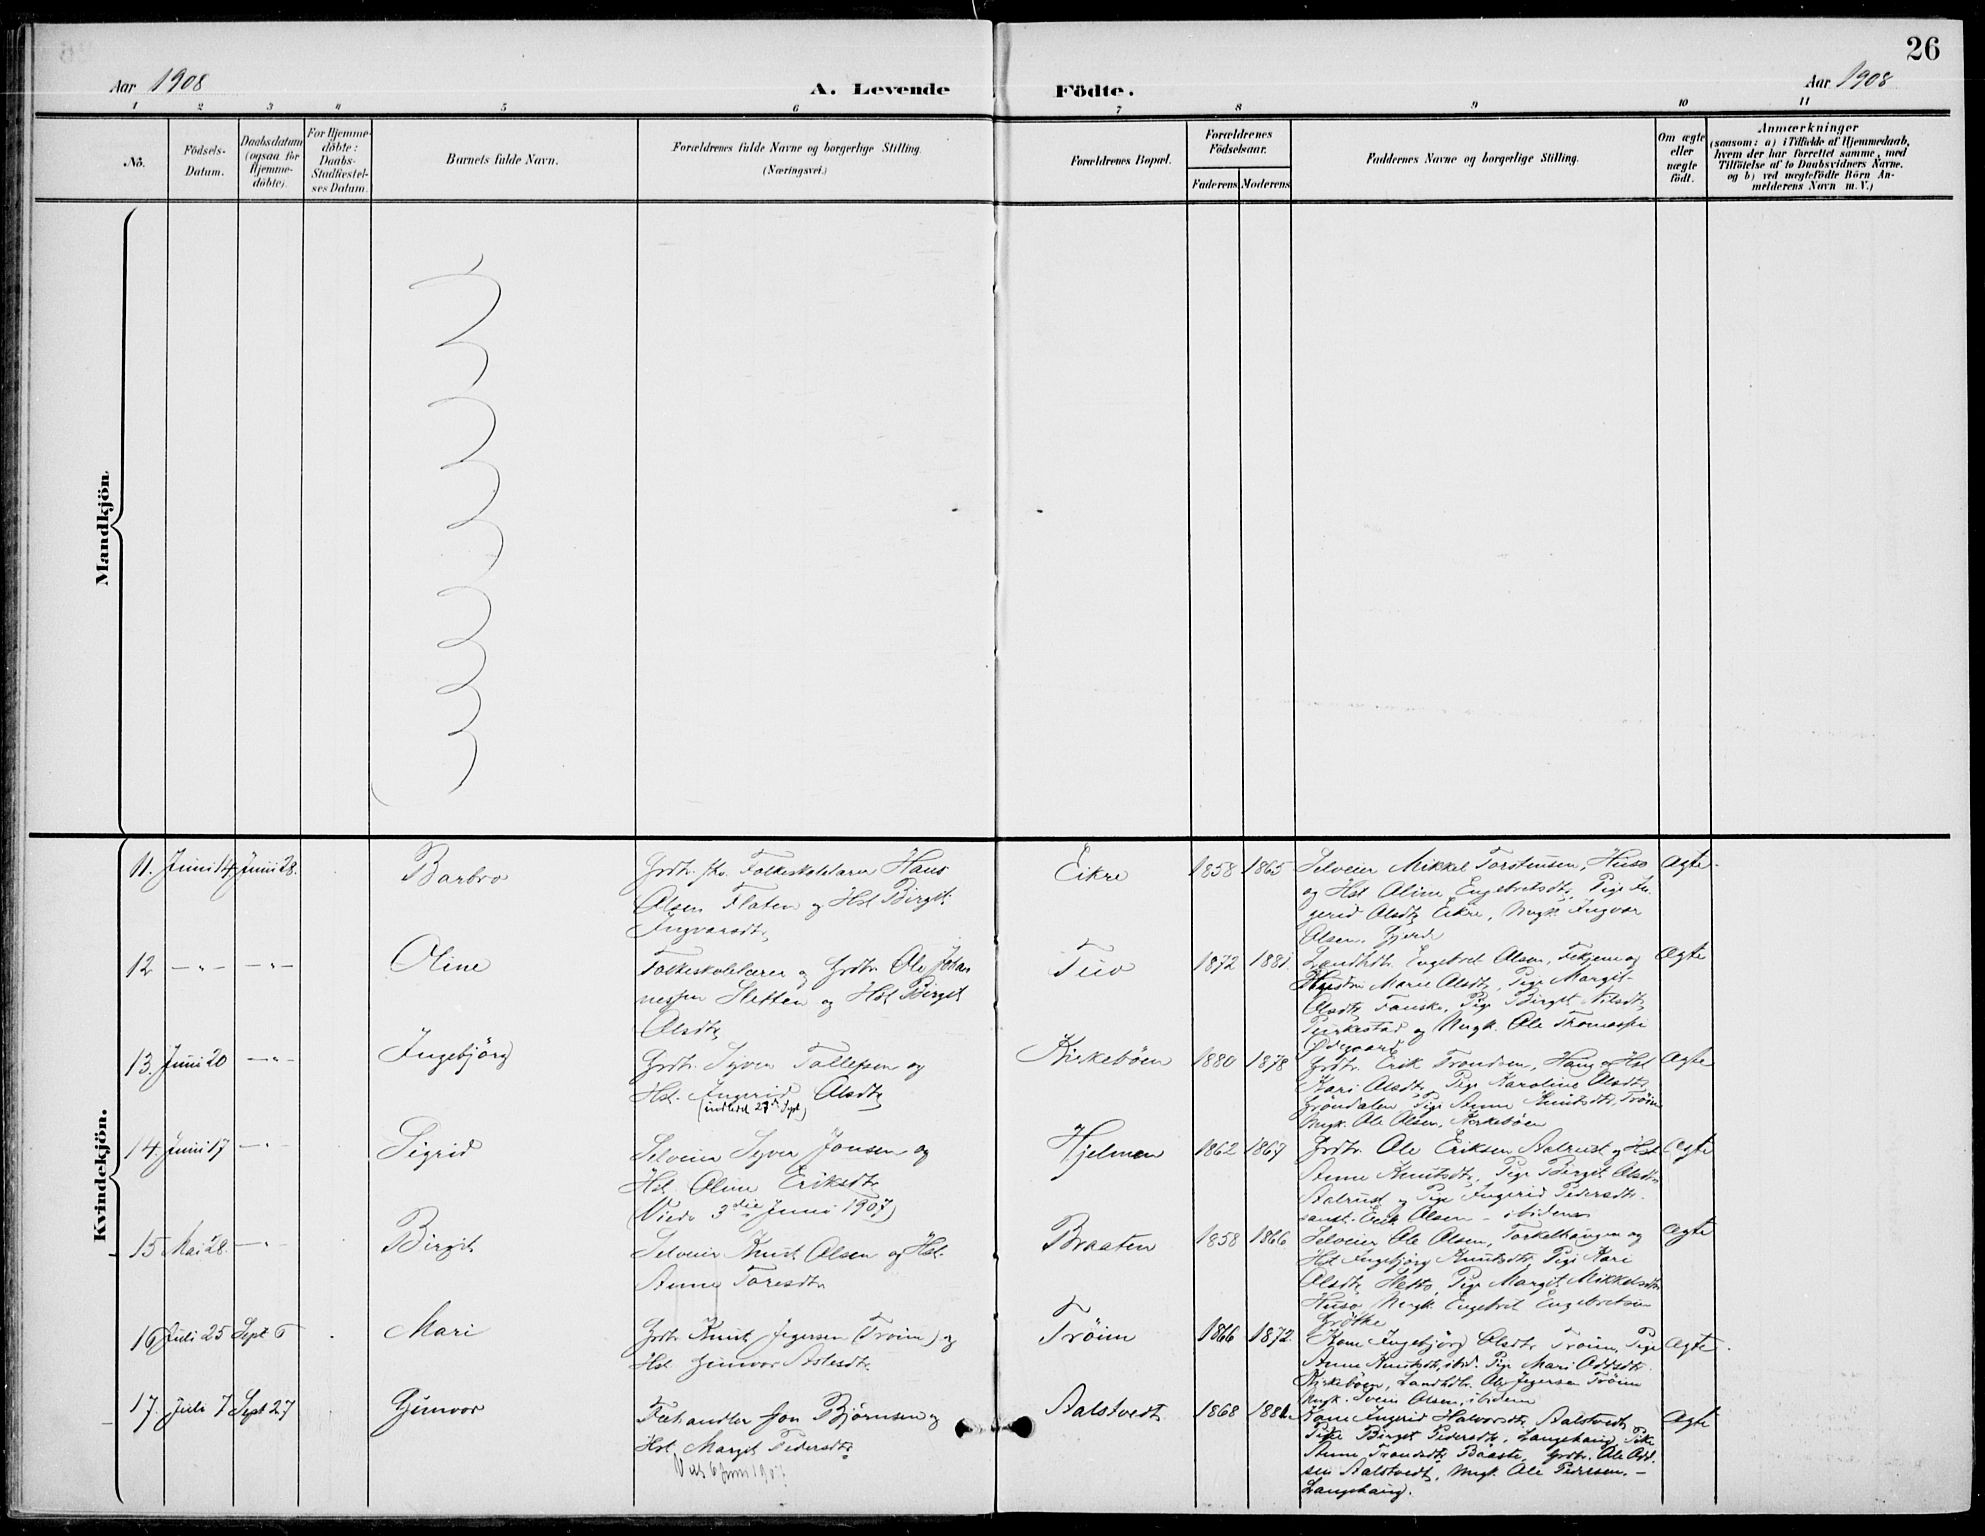 26
Aar 1908
A. Levende Födte.
Aar 1908
1 2 3 4 5 6 7 8 9 10 11
Nö.
Födsels-
Datum.
Daabsdatum
(ogsaa for
Hjemme-
döbte).
For Hjemme-
döbte:
Daabs-
Stadfæstel-
ses Datum.
Barnets fulde Navn.
Forældrenes fulde Navne og borgerlige Stilling.
(Næringsvei.)
Forældrenes Bopæl.
Forældrenes
Födselsaar.
Faderens Moderens
Faddernes Navne og borgerlige Stilling.
Om ægte
eller
uægte
född.
Anmærkninger
(saasom: a) i Tilfælde af Hjemmedaab,
hvem der har forrettet samme, med
Tilföielse af to Daabsvidners Navne.
og b) ved uægtefödte Börn An-
melderens Navn m. V.)
Mandkjön.
Kvindekjön.
11. Juni 14 Juni 28.
Barbro
Grdbr. fhv. Folkeskolelærer Hans
Olsen Flaten og Hst Birgit
Ingvarsdtr.
Eikre
1858 1865
Selveier Mikkel Torstensen, Huso
og Hst Oline Engebretsdtr, Pige In-
gerid Olsdtr Eikre, Ungk. Ingvar
Olsen, Gjerde
Ægte.
12 — " — — " —
Oline
Folkeskolelærer og Grdbr. Ole Johan
nessen Sletten og Hst Birgit
Olsdtr
Tuv
1872 1881.
Landhdlr. Engebret Olsen, Fekjem og
Hustru Marie Olsdtr, Pige Margit
Olsdtr Fauske, Pige Birgit Nilsdtr,
og Ungk. Ole Thomassen
Ødegaard
Ægte
13. Juni 20 — " —
Ingebjörg
Grdbr. Syver Tollefsen og
Hst. Ingerid Olsdtr
(indledet 27de Sept)
Kirkebøen
1880 1878
Grdbr. Erik Trondsen, Haug og Hst
Kari Olsdtr, Pige Karoline Olsdtr,
Gröndalen, Pige Anne Knutsdtr, Tröim
Ungk. Ole Olsen, Kirkebøen
Ægte
14. Juni 17 — " —
Sigrid
Selveier Syver Jonsen og
Hst. Oline Eriksdtr
(Viede 3die Juni 1907)
Hjelmen
1862 1867
Grdbr. Ole Eriksen Aalrust og Hst
Anne Knutsdtr, Pige Birgit Olsdtr
Aalrust og Pige Ingerid Pedersdtr.
samt. Erik Olsen — ibidem
Ægte
15 Mai 28. — " —
Birgit
Selveier Knut Olsen og Hst.
Anne Toresdtr
Braaten
1858 1866
Selveier Ole Olsen, Torkelhaugen og
Hst Ingebjörg Knutsdtr, Pige Kari
Olsdtr, Pige Margit Mikkelsdtr
Huso, Ungk. Engebret Engebretsen
Grøtke
Ægte
16 Juli 25 Sept 6
Mari
Grdbr. Knut Jegersen (Tröim) og
Hst Gunvor Aslesdtr.
Tröim
1866 1872.
Kone Ingebjörg Olsdtr Tröim, Pige
Anne Knutsdtr, ibid. Pige Mari Oddsdtr
Kirkebøen, Landhdlr. Ole Jegersen Tröim
Ungk. Svein Olsen, ibidem
Ægte.
17. Juli 7 Sept 27
Gunvor
Fehandler Jon Bjørnsen og
Hst. Margit Pedersdtr.
Viet 6 Juni 1907
Aalstvedt
1868 1881.
Kone Ingerid Halvorsdtr Aalstvedt,
Pike Birget Pedersdtr, Langehaug, Pike
Anne Trondsdtr, Baaste, Grdbr. Ole Odd-
sen Aalstvedt, Ungk. Ole Pedersen. —
Langehaug.
Ægte